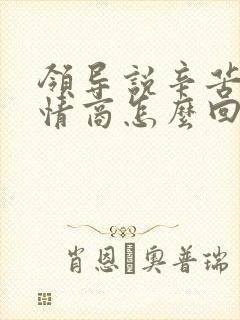 領导說辛苦
情商怎麼回
肖恩·奧普瑞